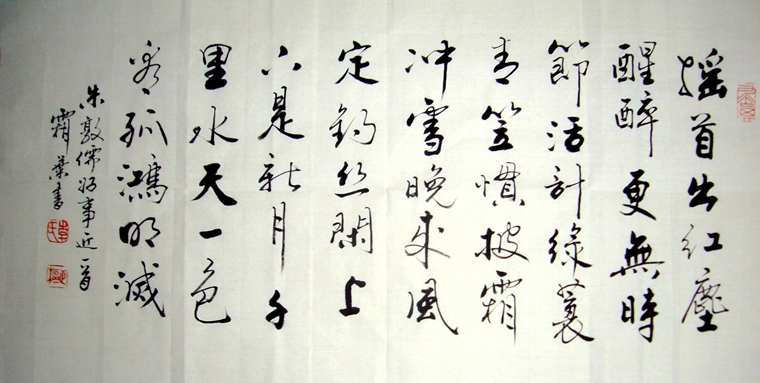 摇首出红塵
醒醉更無時
節活計綠蓑
青笠慣披霜
冲雪晚来風
定釣丝閑上
下是新月千
里水天一色
看孤鴻明滅
朱敦儒好事近一首
霜葉書